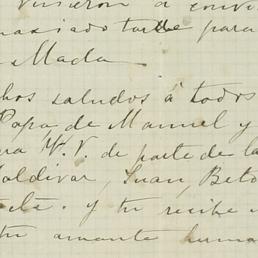 vinieron a convi
masiado tarde para
Mada.
hos saludos á todos
Papa, de Manuel y
ra V. V. de parte de la
aldivar, Juan, Beto
y tu recibe
tu amante herma